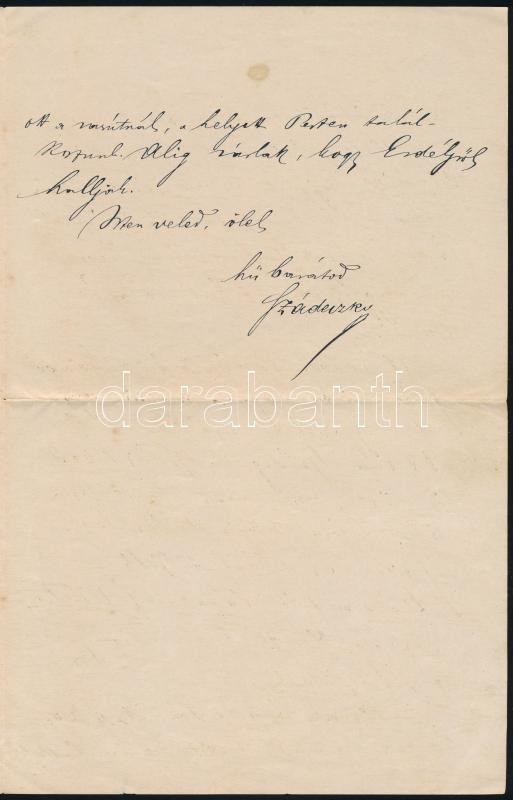 ott a vasútnál, a helyett Pesten talál-
kozunk. Alig várlak, hogy Erdélyről
halljak.
Isten veled, ölel
hű barátod
Szádeczky
darabanth